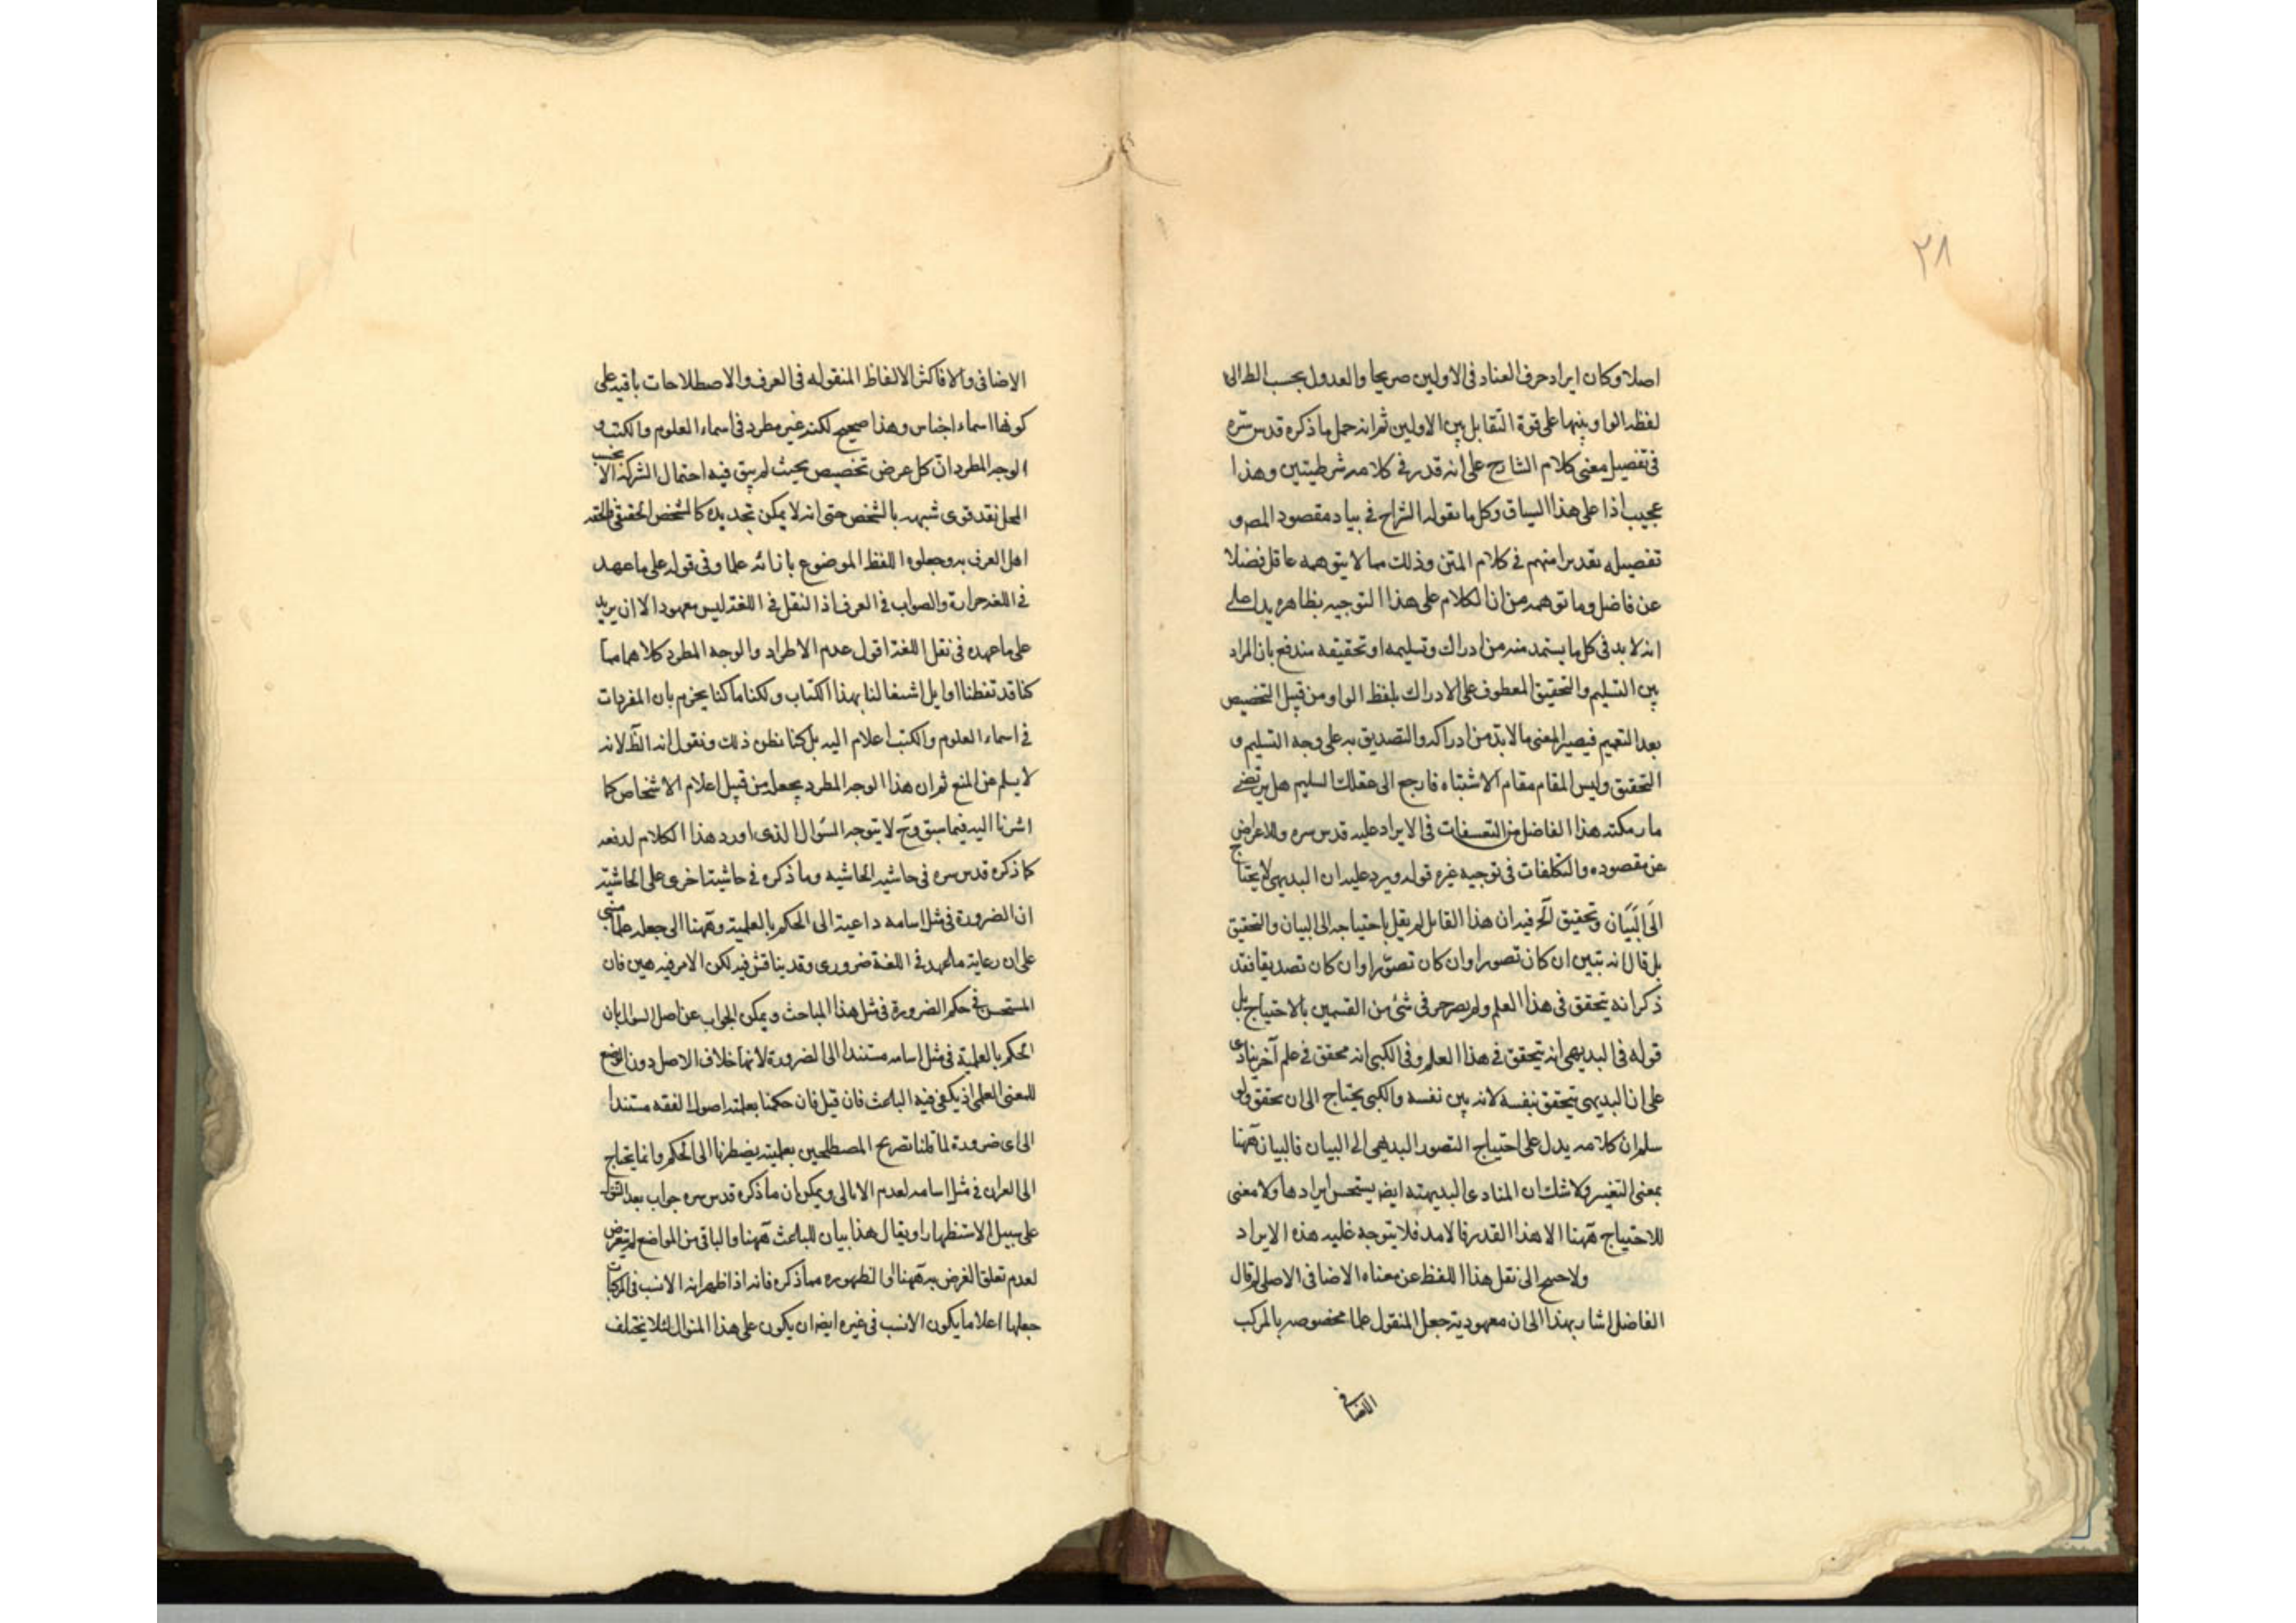 ٢٨
اصلا وكان ايراد حرف العناد فى الاولين صريحا والعدول بحسب الظ الى
لفظه الواو بينها على قوة التقابل بين الاولين ثم انه حمل ما ذكره قدس سره
فى تفصيل معنى كلام الشارح على انه قدر فى كلامه شرطيتين وهذا
عجيب اذا على هذا السياق وكل ما يقوله الشراح فى بيان مقصود المص و
تفصيله تقديرا منهم فى كلام المتن وذلك مما لا يتوهمه عاقل فضلا
عن فاضل وما توهمه من ان الكلام على هذا التوجيه بظاهره يدل على
انه لا بد فى كل ما يستمد منه من ادراك وتسليمه او تحقيقه مندفع بان المراد
بين التسليم والتحقيق المعطوف على الادراك بلفظ الواو ومن قبيل التخصيص
بعد التعميم فيصير المعنى ما لا بد من ادراكه والتصديق به على وجه التسليم و
التحقيق وليس المقام مقام الاشتباه فارجع الى عقلك السليم هل يرتضى
ما ركبته هذا الفاضل من التعسفات فى الايراد عليه قدس سره والاعراض
عن مقصوده والتكلفات فى توجيه غيره قوله ويرد عليه ان البديهى لا يحتاج
الى البيان وتحقيق آلخ فيه ان هذا القايل لم يقل باحتياجه الى البيان والتحقيق
بل قال انه تبين ان كان تصورا وان كان تصورا وان كان تصديقا فقد
ذكر انه يتحقق فى هذا العلم ولم يصرح فى شئ من القسمين بالاحتياج بل
قوله فى البديهى انه يتحقق فى هذا العلم وفى الكسبى انه محقق فى علم آخر ينادى
على ان البديهى يتحقق بنفسه لانه بين نفسه والكسبى يحتاج الى ان يحقق ولو
سلم ان كلامه يدل على احتياج التصور البديهى الى البيان فالبيان ههنا
بمعنى التفسير ولا شك ان المنادى البديهية ايضا يستحسن ايرادها ولا معنى
للاحتياج ههنا الا هذا القدر فلا يتوجه عليه هذه الايراد
ولا حسم الى نقل هذا اللفظ عن معناه الاضافى الاصلى قال
الفاضل اشار بهذا الى ان معهودية جعل المنقول علما مخصوصه بالمركب
الاضافى
الاضافى والا فاكثر الالفاظ المنقوله فى العرف والاصطلاحات باقية على
كونها اسماء اجناس وهذا صحيح لكنه غير مطرد فى اسماء العلوم والكتب و
الوجه المطرد ان كل عرض تخصيص بحيث لم يبق فيه احتمال الشركة الا بحسب
المحل نقد قوى شبهه بالشخص حتى انه لا يمكن تحديده كالشخص الحقيقى فالحقه
اهل العرف به وجعلوا اللفظ الموضوع بازائه علما وفى قوله على ما عهد
فى اللغه حرازة والصواب فى العرف اذ النقل فى اللغة ليس معهودا الا ان يريد
على ما عهده فى نقل اللغة اقول عدم الاطراد والوجه المطرد كلاهما مما
كنا قد تفطنا اوايل اشتغالنا بهذا الكتاب ولكنا ما كنا نجزم بان المفردات
فى اسماء العلوم والكتب اعلام اليه بل كنا نظن ذلك ونقول انه الظ لانه
لا يسلم عن المنع ثم ان هذا الوجه المطرد يجعله من قبيل اعلام الاشخاص كما
اشرنا اليه فيما سبق وح لا يتوجه السؤال الذى اورد هذا الكلام لدفعه
كما ذكره قدس سره فى حاشية الحاشيه وما ذكره فى حاشية اخرى على الحاشية
ان الضرورة فى مثل اسامه داعية الى الحكم بالعلمية وههنا الى جعله علما مبنى
على ان رعاية ما عهد فى اللغة ضرورى وقد يناقش فيه لكن الامر فيه هين فان
المستحسن فى حكم الضرورة فى مثل هذا المباحث ويمكن الجواب عن اصل السؤال بان
الحكم بالعلمية فى مثل اسامه مستند الى الضرورة لانها خلاف الاصل دون الوضع
للمعنى العلمى اذ يكفى فيه الباعث فان قيل فان حكمنا بعلمية اصول الفقه مستند
الى اى ضرورة لما قلنا تصريح المصطلحين بعلميته يضطرنا الى الحكم وانما يحتاج
الى العران فى مثل اسامه لعدم الامالى ويمكن ان ما ذكره قدس سره جواب بعد
على سبيل الاستظهار او يقال هذا بيان للباعث ههنا والباقى من المواضع لم يتعرض
لعدم تعلق الغرض به ههنا او لظهوره مما ذكره فانه اذا ظهر انه الانسب فى المركبات
جعلها اعلاما يكون الانسب فى غيره ايضا ان يكون على هذا المنوال لئلا يختلف